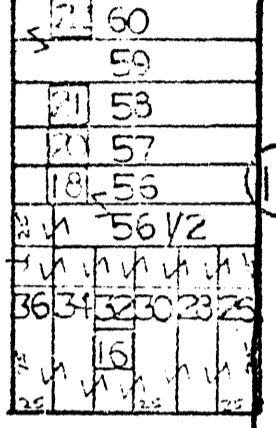 60
59
21 58
20 57
18 56
56 1/2
36 34 32 30 28 26
16
25 25 25